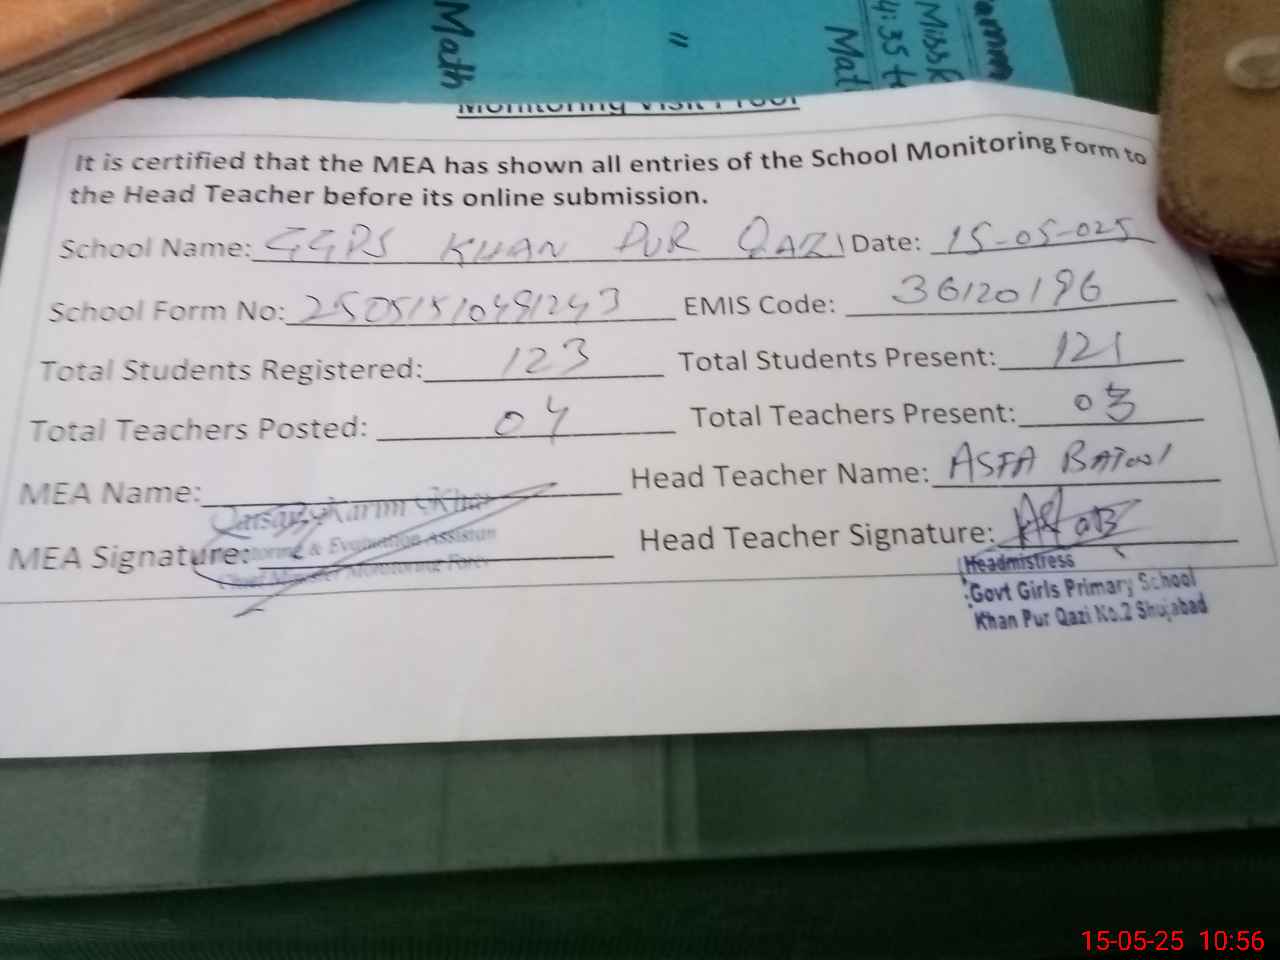 Math
"
Mat
4:35 t
Miss K
Monitoring Visit Proof
It is certified that the MEA has shown all entries of the School Monitoring Form to
the Head Teacher before its online submission.
School Name: GGPS KHAN PUR QAZI Date: 15-05-025
School Form No: 25051510491243 EMIS Code: 36120196
Total Students Registered: 123 Total Students Present: 121
Total Teachers Posted: 04 Total Teachers Present: 03
MEA Name: Head Teacher Name: ASFA BATOOL
Qaisar Karim Khan
MEA Signature: Head Teacher Signature:
Monitoring & Evaluation Assistan
Chief Minister Monitoring Force
Headmistress
Govt Girls Primary School
Khan Pur Qazi No.2 Shujabad
15-05-25 10:56